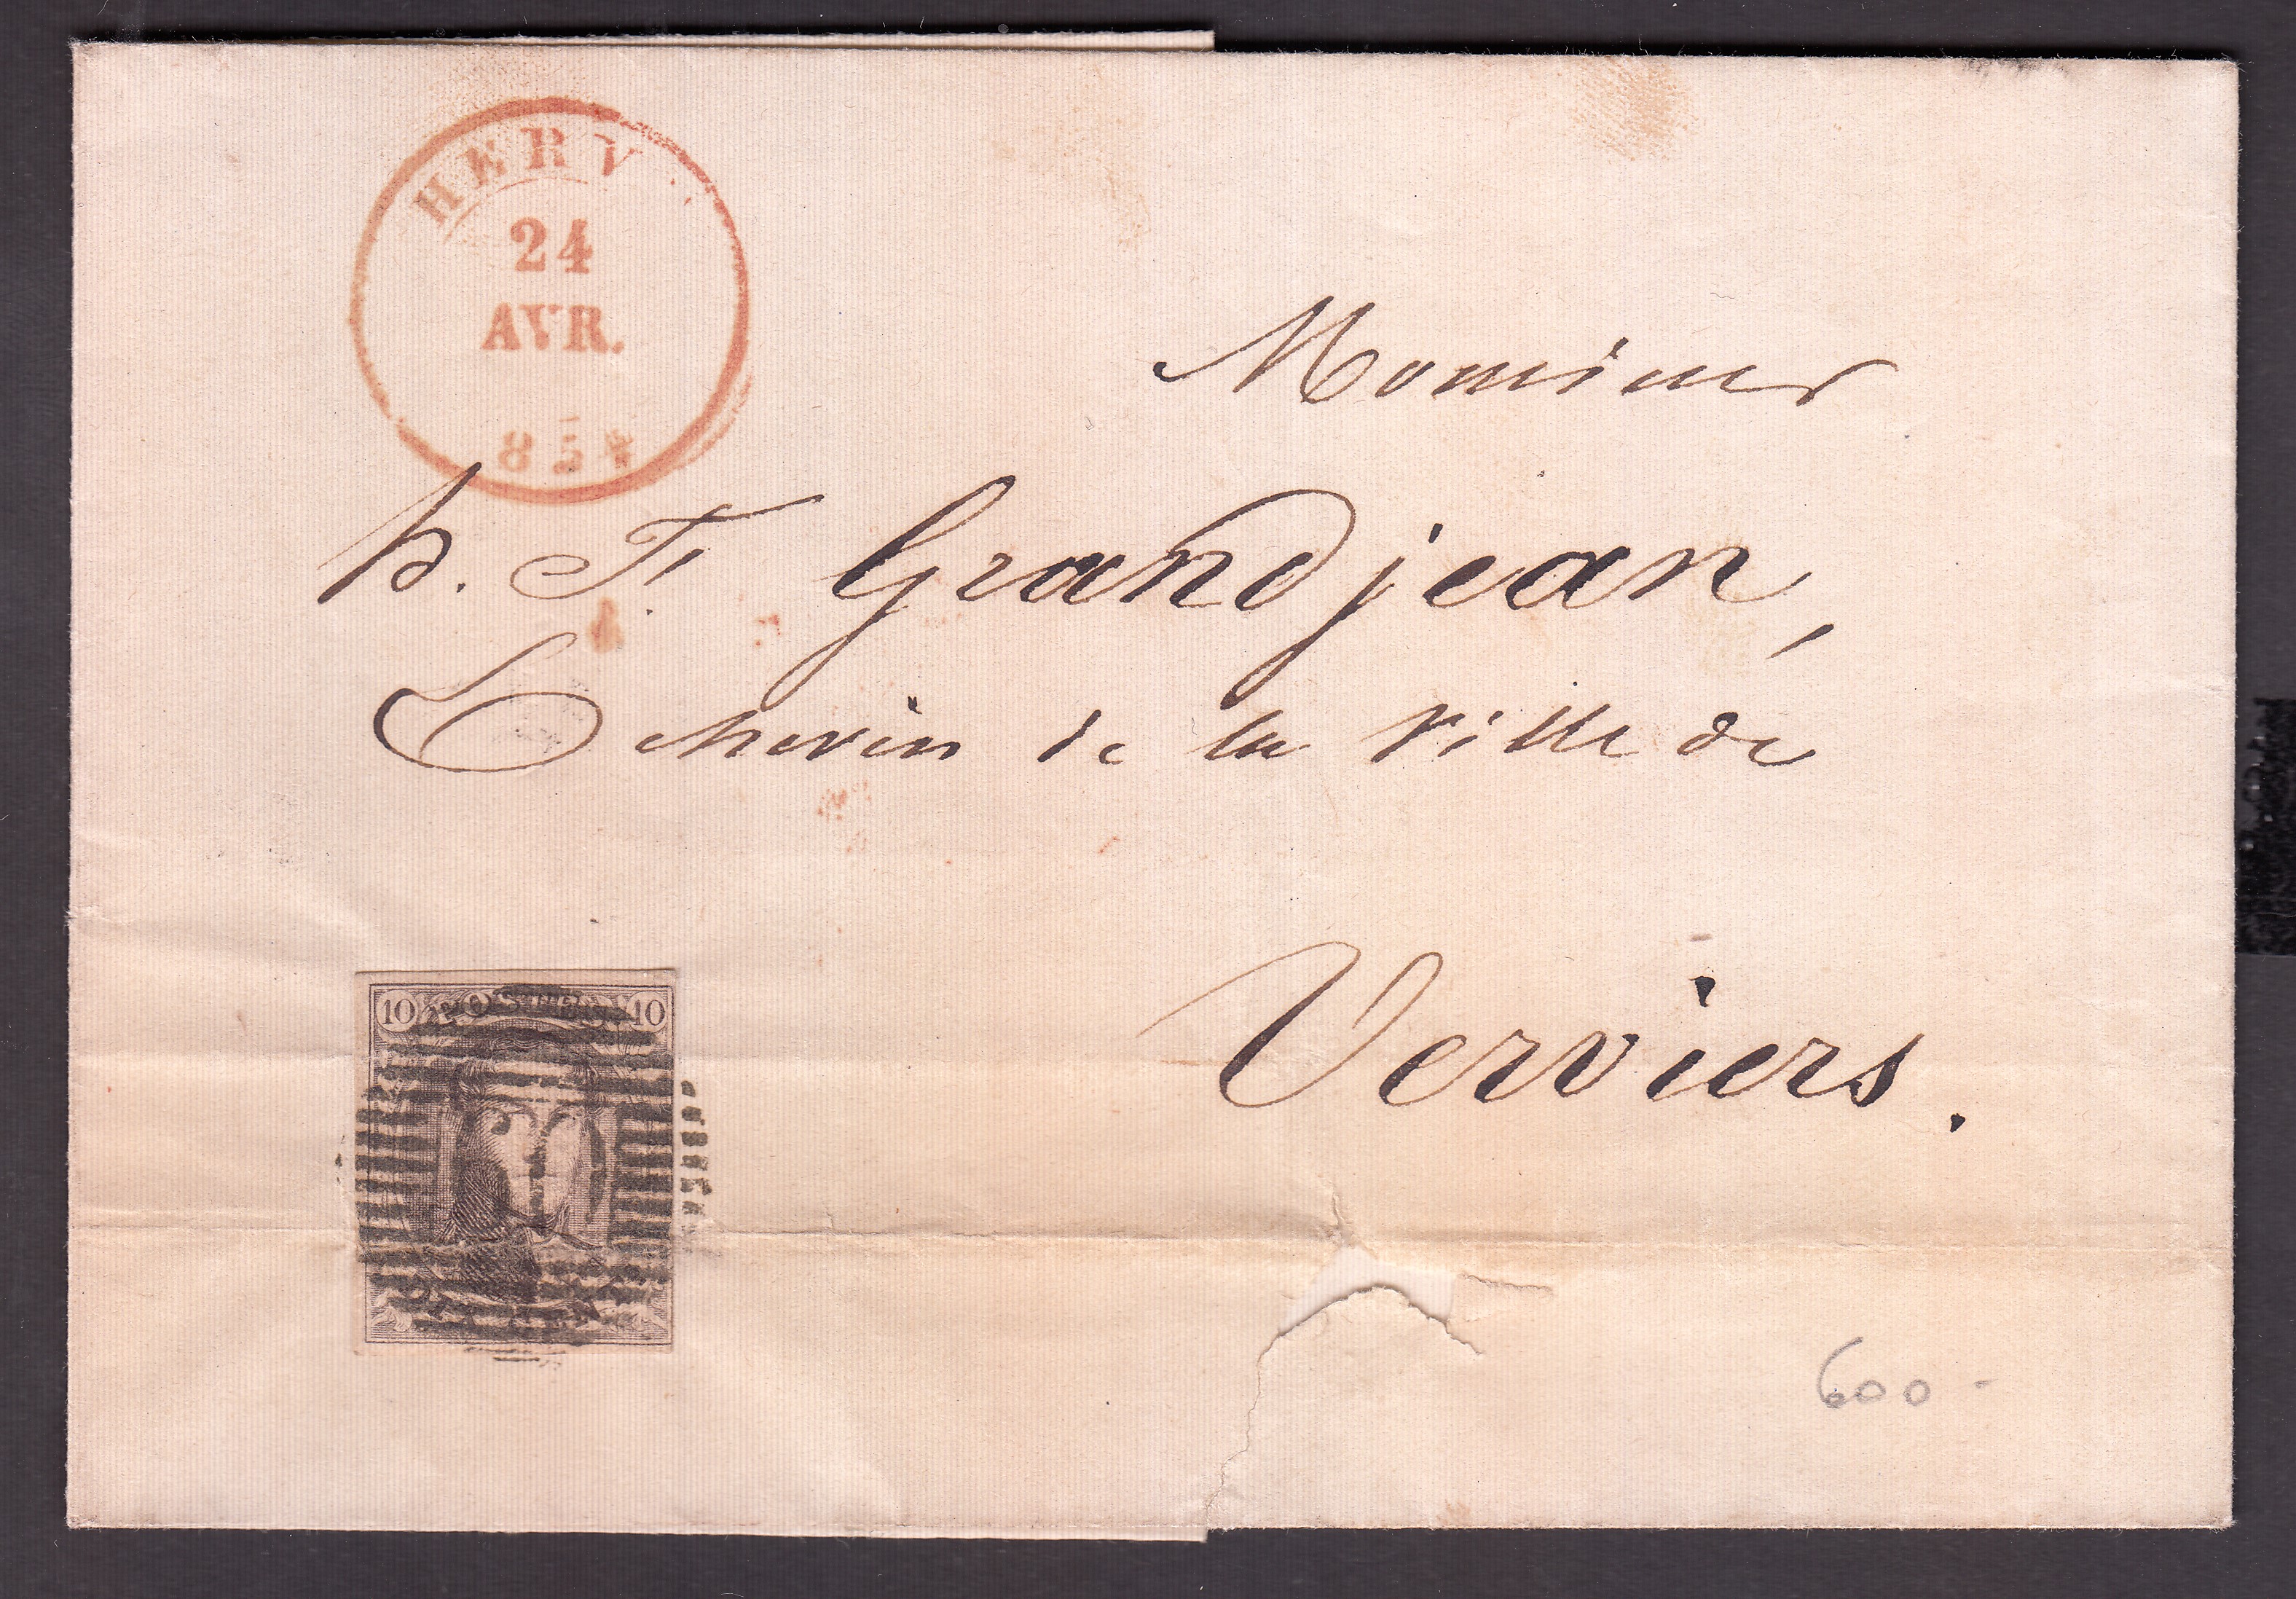 HERV
24
AVR.
854
Monsieur
h. F. Grandjean,
Echevin de la Ville de
Verviers.
10 POSTES 10
DIX CEN
600 -